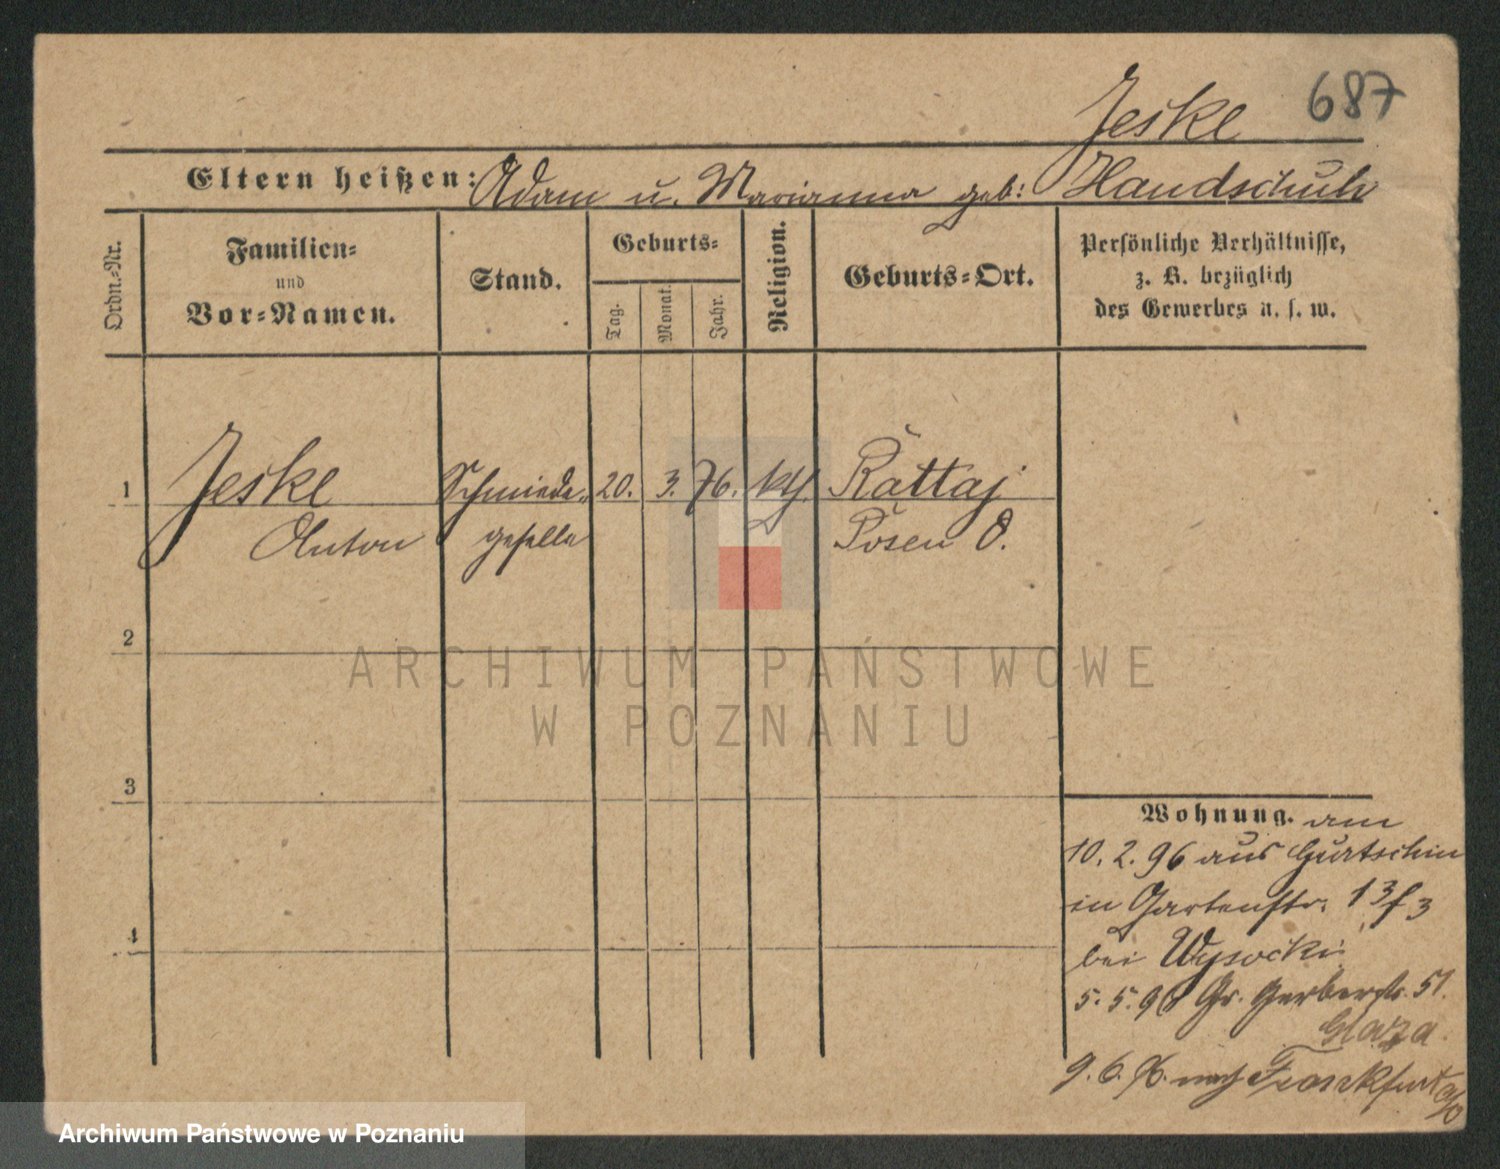 687
Jeske
Eltern heißen: Adam u. Marianna geb: Handschuh
Ordn.-Nr.
Familien-
und
Vor-Namen.
Stand.
Geburts-
Tag.
Monat.
Jahr.
Religion.
Geburts-Ort.
Persönliche Verhältnisse,
z. B. bezüglich
des Gewerbes u. s. w.
1 Jeske Schmiede- 20. 3. 76. kth. Rattaj
Anton geselle Posen O.
2
3
4
Wohnung. am
10. 2. 96 aus Gurtschin
in Gartenstr. 13 f 3
bei Wysocki
5. 5. 96 Gr. Gerberstr. 51.
Glaza.
9. 6. 96. nach Frankfurt a/O
ARCHIWUM PAŃSTWOWE
W POZNANIU
Archiwum Państwowe w Poznaniu